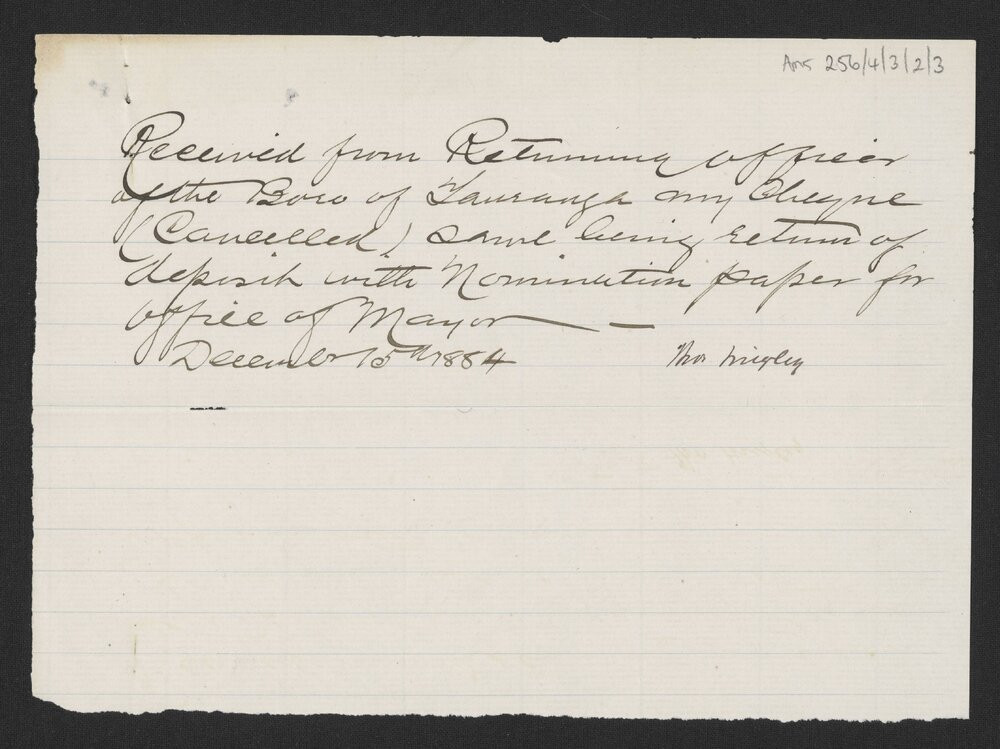 Ams 256/4/3/2/3
Received from Returning officer
of the Boro of Tauranga my Cheque
(Cancelled) same being return of
deposit with Nomination paper for
office of Mayor —
December 15th 1884 Thos Wrigley